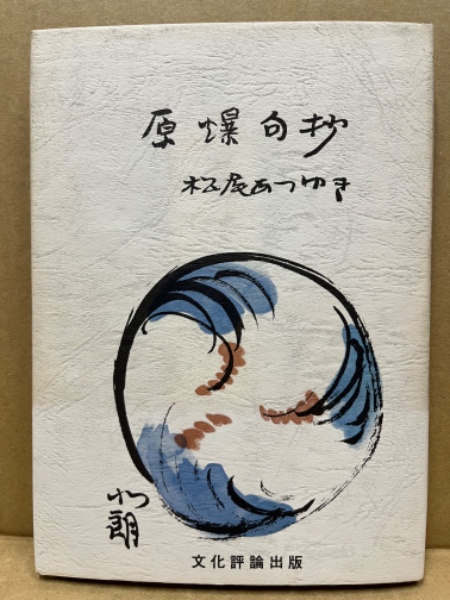 原爆句抄
松尾あつゆき
文化評論出版